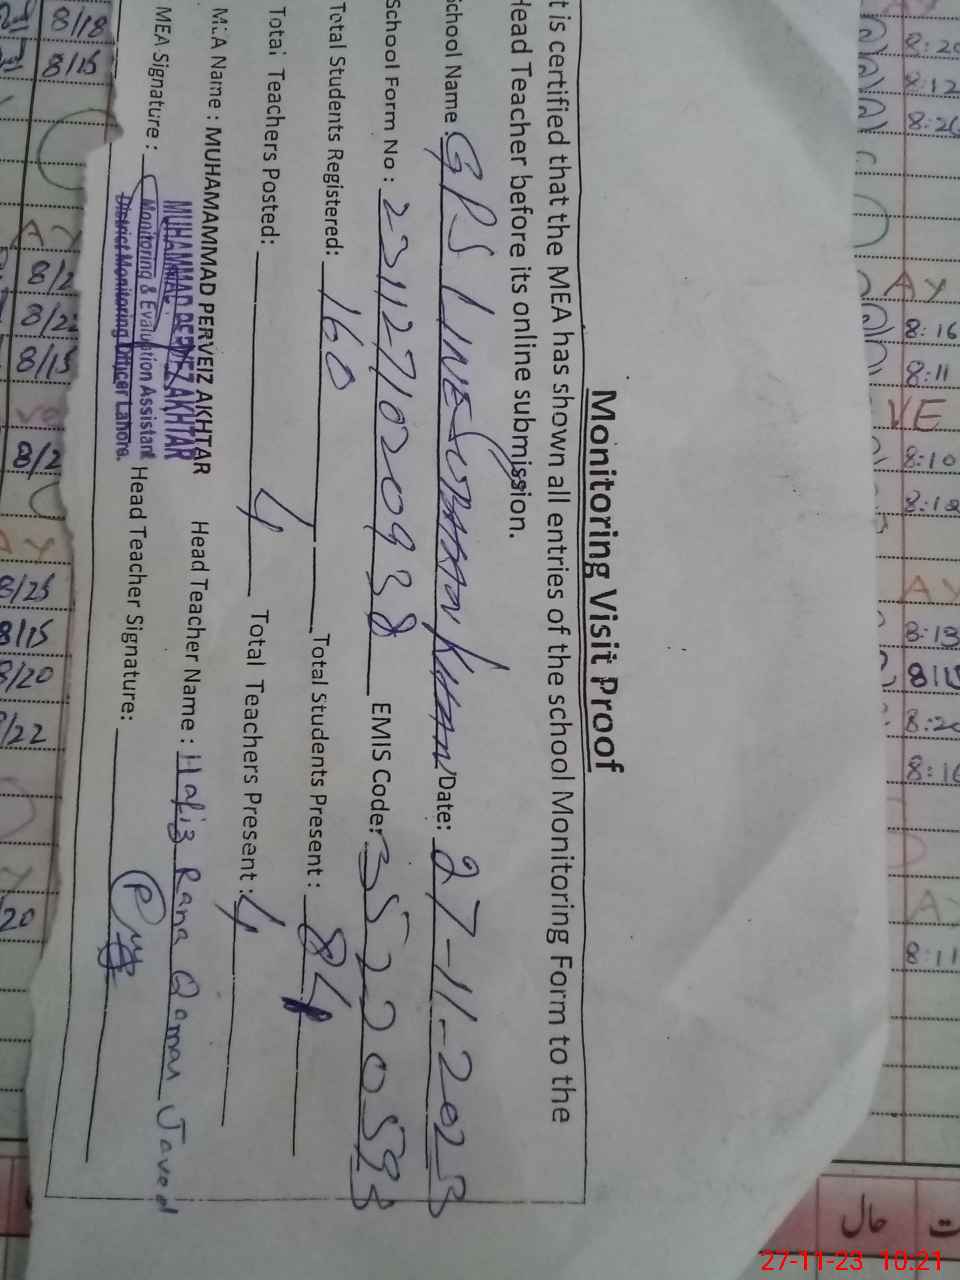 Monitoring Visit Proof
t is certified that the MEA has shown all entries of the school Monitoring Form to the
Head Teacher before its online submission.
School Name: GPS LINE SUBHAN KHAN Date: 27-11-2023
School Form No: 2311271020938 EMIS Code: 35220593
Total Students Registered: 160 Total Students Present: 84
Total Teachers Posted: 4 Total Teachers Present: 4
MEA Name: MUHAMAMMAD PERVEIZ AKHTAR Head Teacher Name: Hafiz Rana Qamar Javed
MEA Signature: Head Teacher Signature:
MUHAMMAD PERVEZ AKHTAR
Monitoring & Evaluation Assistant
District Monitoring Officer Lahore.
8/18
8/15
AY
8/2
8/15
8/2
AY
8/25
8/15
8/20
8/22
20
8:20
8:12
8:20
AY
8:16
8:11
VE
8:10
8:18
AY
8:13
8:20
8:10
8:11
حال
27-11-23 10:21